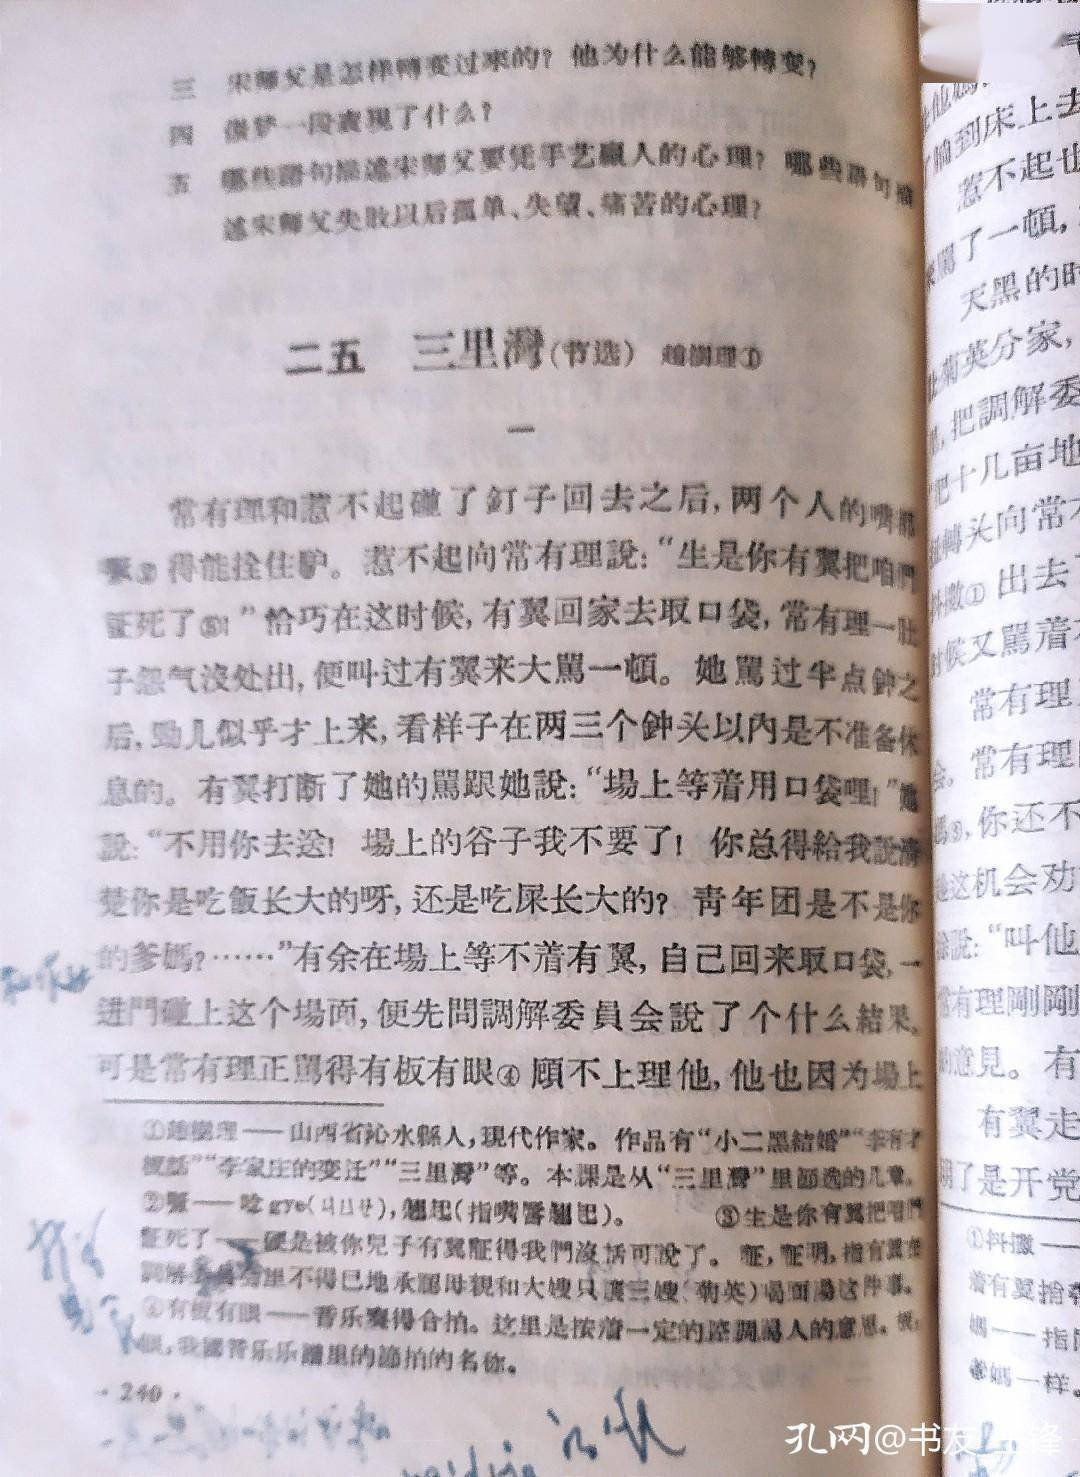 三 宋师父是怎样轉变过来的？他为什么能够轉变？
四 做梦一段表现了什么？
五 哪些語句描述宋师父要凭手艺贏人的心理？哪些語句描
述宋师父失敗以后孤单、失望、痛苦的心理？
二五 三里灣(节选) 趙樹理①
一
常有理和惹不起碰了釘子回去之后，两个人的嘴都
②得能拴住驴。惹不起向常有理說：“生是你有翼把咱們
証死了③！”恰巧在这时候，有翼回家去取口袋，常有理一肚
子怨气沒处出，便叫过有翼来大駡一頓。她駡过半点鈡之
后，勁儿似乎才上来，看样子在两三个鈡头以內是不准备休
息的。有翼打断了她的駡跟她說：“場上等着用口袋哩！”她
說：“不用你去送！場上的谷子我不要了！你总得給我說清
楚你是吃飯长大的呀，还是吃屎长大的？靑年团是不是你
的爹媽？……”有余在場上等不着有翼，自己回来取口袋，一
进門碰上这个場面，便先問調解委員会說了个什么結果。
可是常有理正駡得有板有眼④顧不上理他，他也因为場上
①趙樹理——山西省沁水縣人，現代作家。作品有“小二黑結婚”“李有才
板話”“李家庄的变迁”“三里灣”等。本課是从“三里灣”里節选的几章。
②——唸 (ㄐㄩㄝ)，翹起(指嘴唇翹起)。 ③生是你有翼把咱們
証死了——硬是被你兒子有翼証得我們沒話可說了。証，証明，指有翼在
調解委員会里不得已地承認母親和大嫂只讓三嫂(菊英)喝面湯这件事。
④有板有眼——音乐奏得合拍。这里是按着一定的腔調駡人的意思。板，
眼，我國音乐乐譜里的節拍的名称。
·240·
到床上去
惹不起也
了一頓，
天黑的时
菊英分家，
把調解委
把十几亩地
轉头向常有
抖擻①出去
时候又駡着
常有理
常有理
你还不
这机会劝
說：“叫他
常有理剛剛
的意見。有
有翼走
了是开党
①抖擻——
着有翼抬
媽——指
媽一样。
孔网@书友_王锋